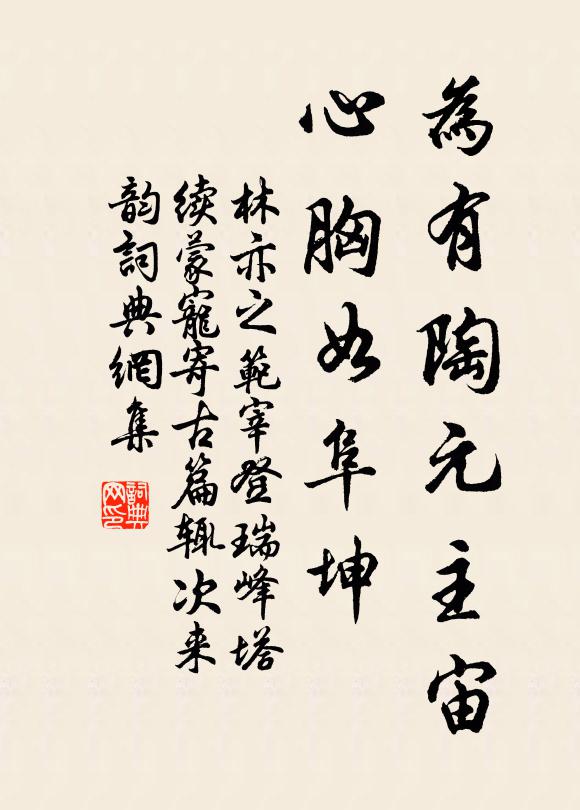 為有陶元主宙
心胸如阜坤
林亦之範宰登瑞峰塔
续蒙寵寄古篇辄次来
韵詞典網集
詞典
网印